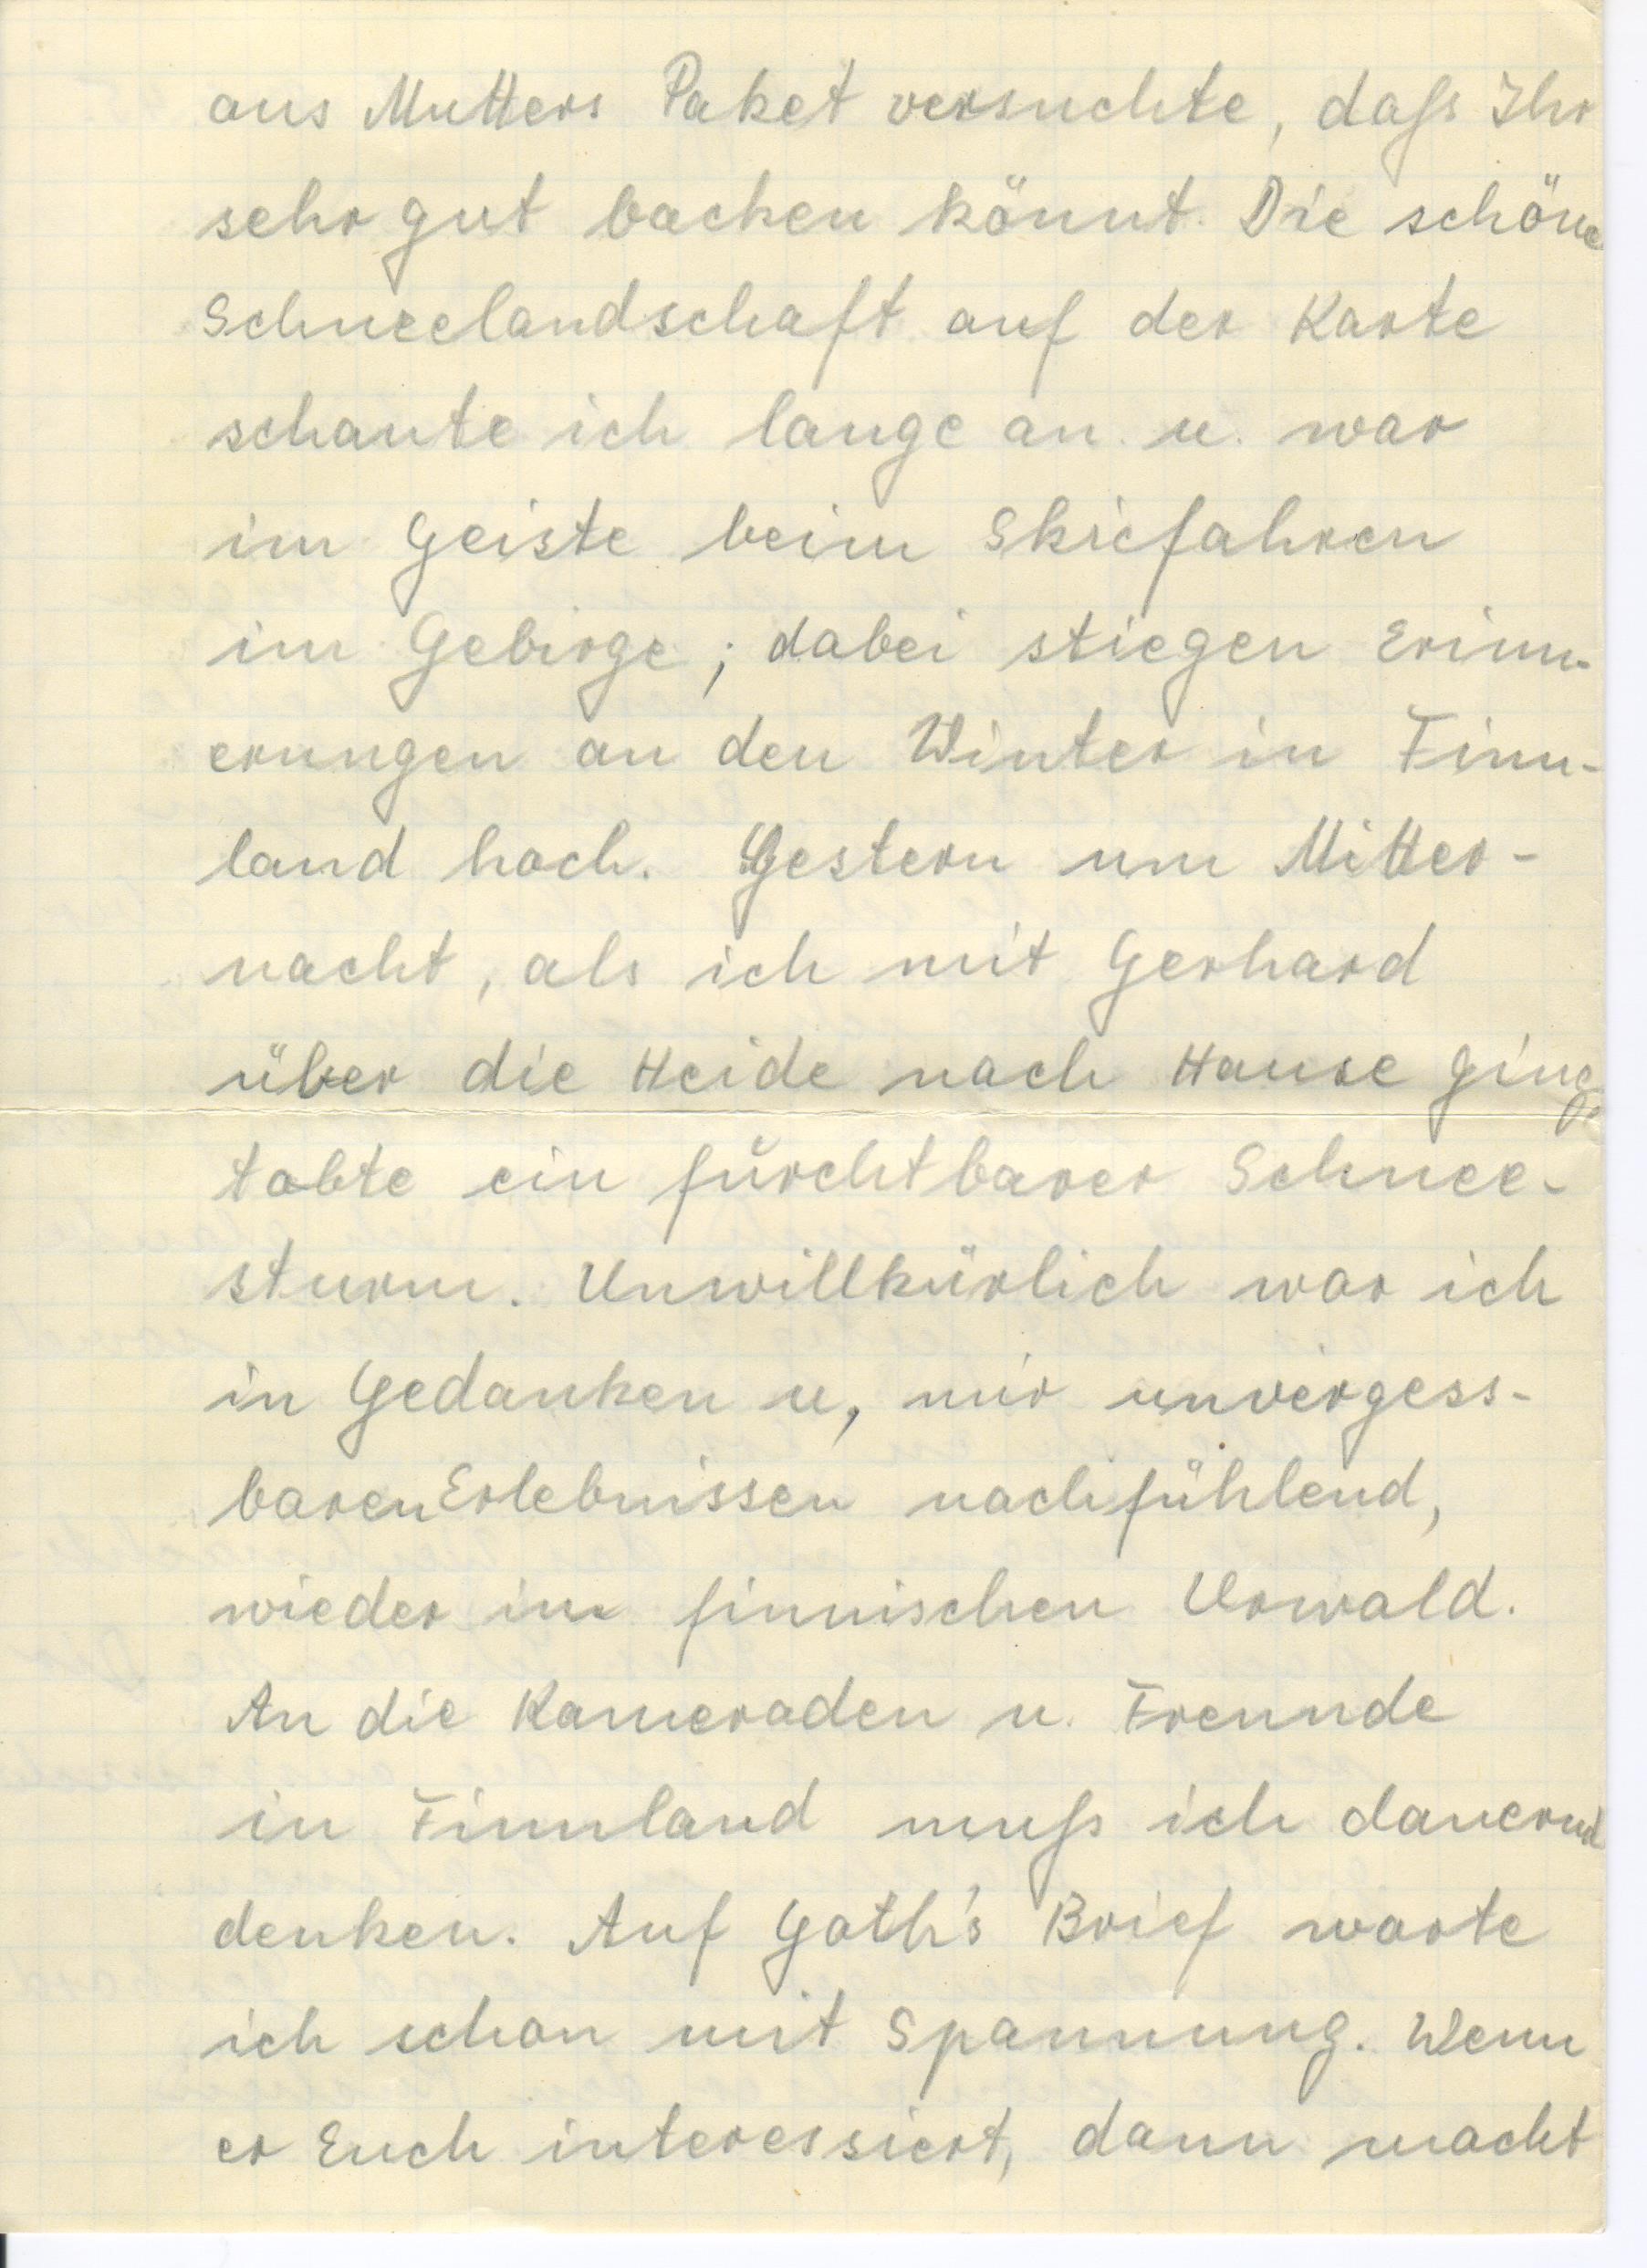 aus Mutters Paket versuchte, daß Ihr
sehr gut backen könnt. Die schöne
Schneelandschaft auf der Karte
schaute ich lange an u. war
im Geiste beim Skiefahren
im Gebirge; dabei stiegen Erinn-
erungen an den Winter in Finn-
land hoch. Gestern um Mitter-
nacht, als ich mit Gerhard
über die Heide nach Hause ging,
tobte ein fürchtbarer Schnee-
sturm. Unwillkürlich war ich
in Gedanken u, mir unvergess-
baren Erlebnissen nachfühlend,
wieder im finnischen Urwald.
An die Kameraden u. Freunde
in Finnland muß ich dauernd
denken. Auf Goth's Brief warte
ich schon mit Spannung. Wenn
er Euch interessiert, dann macht